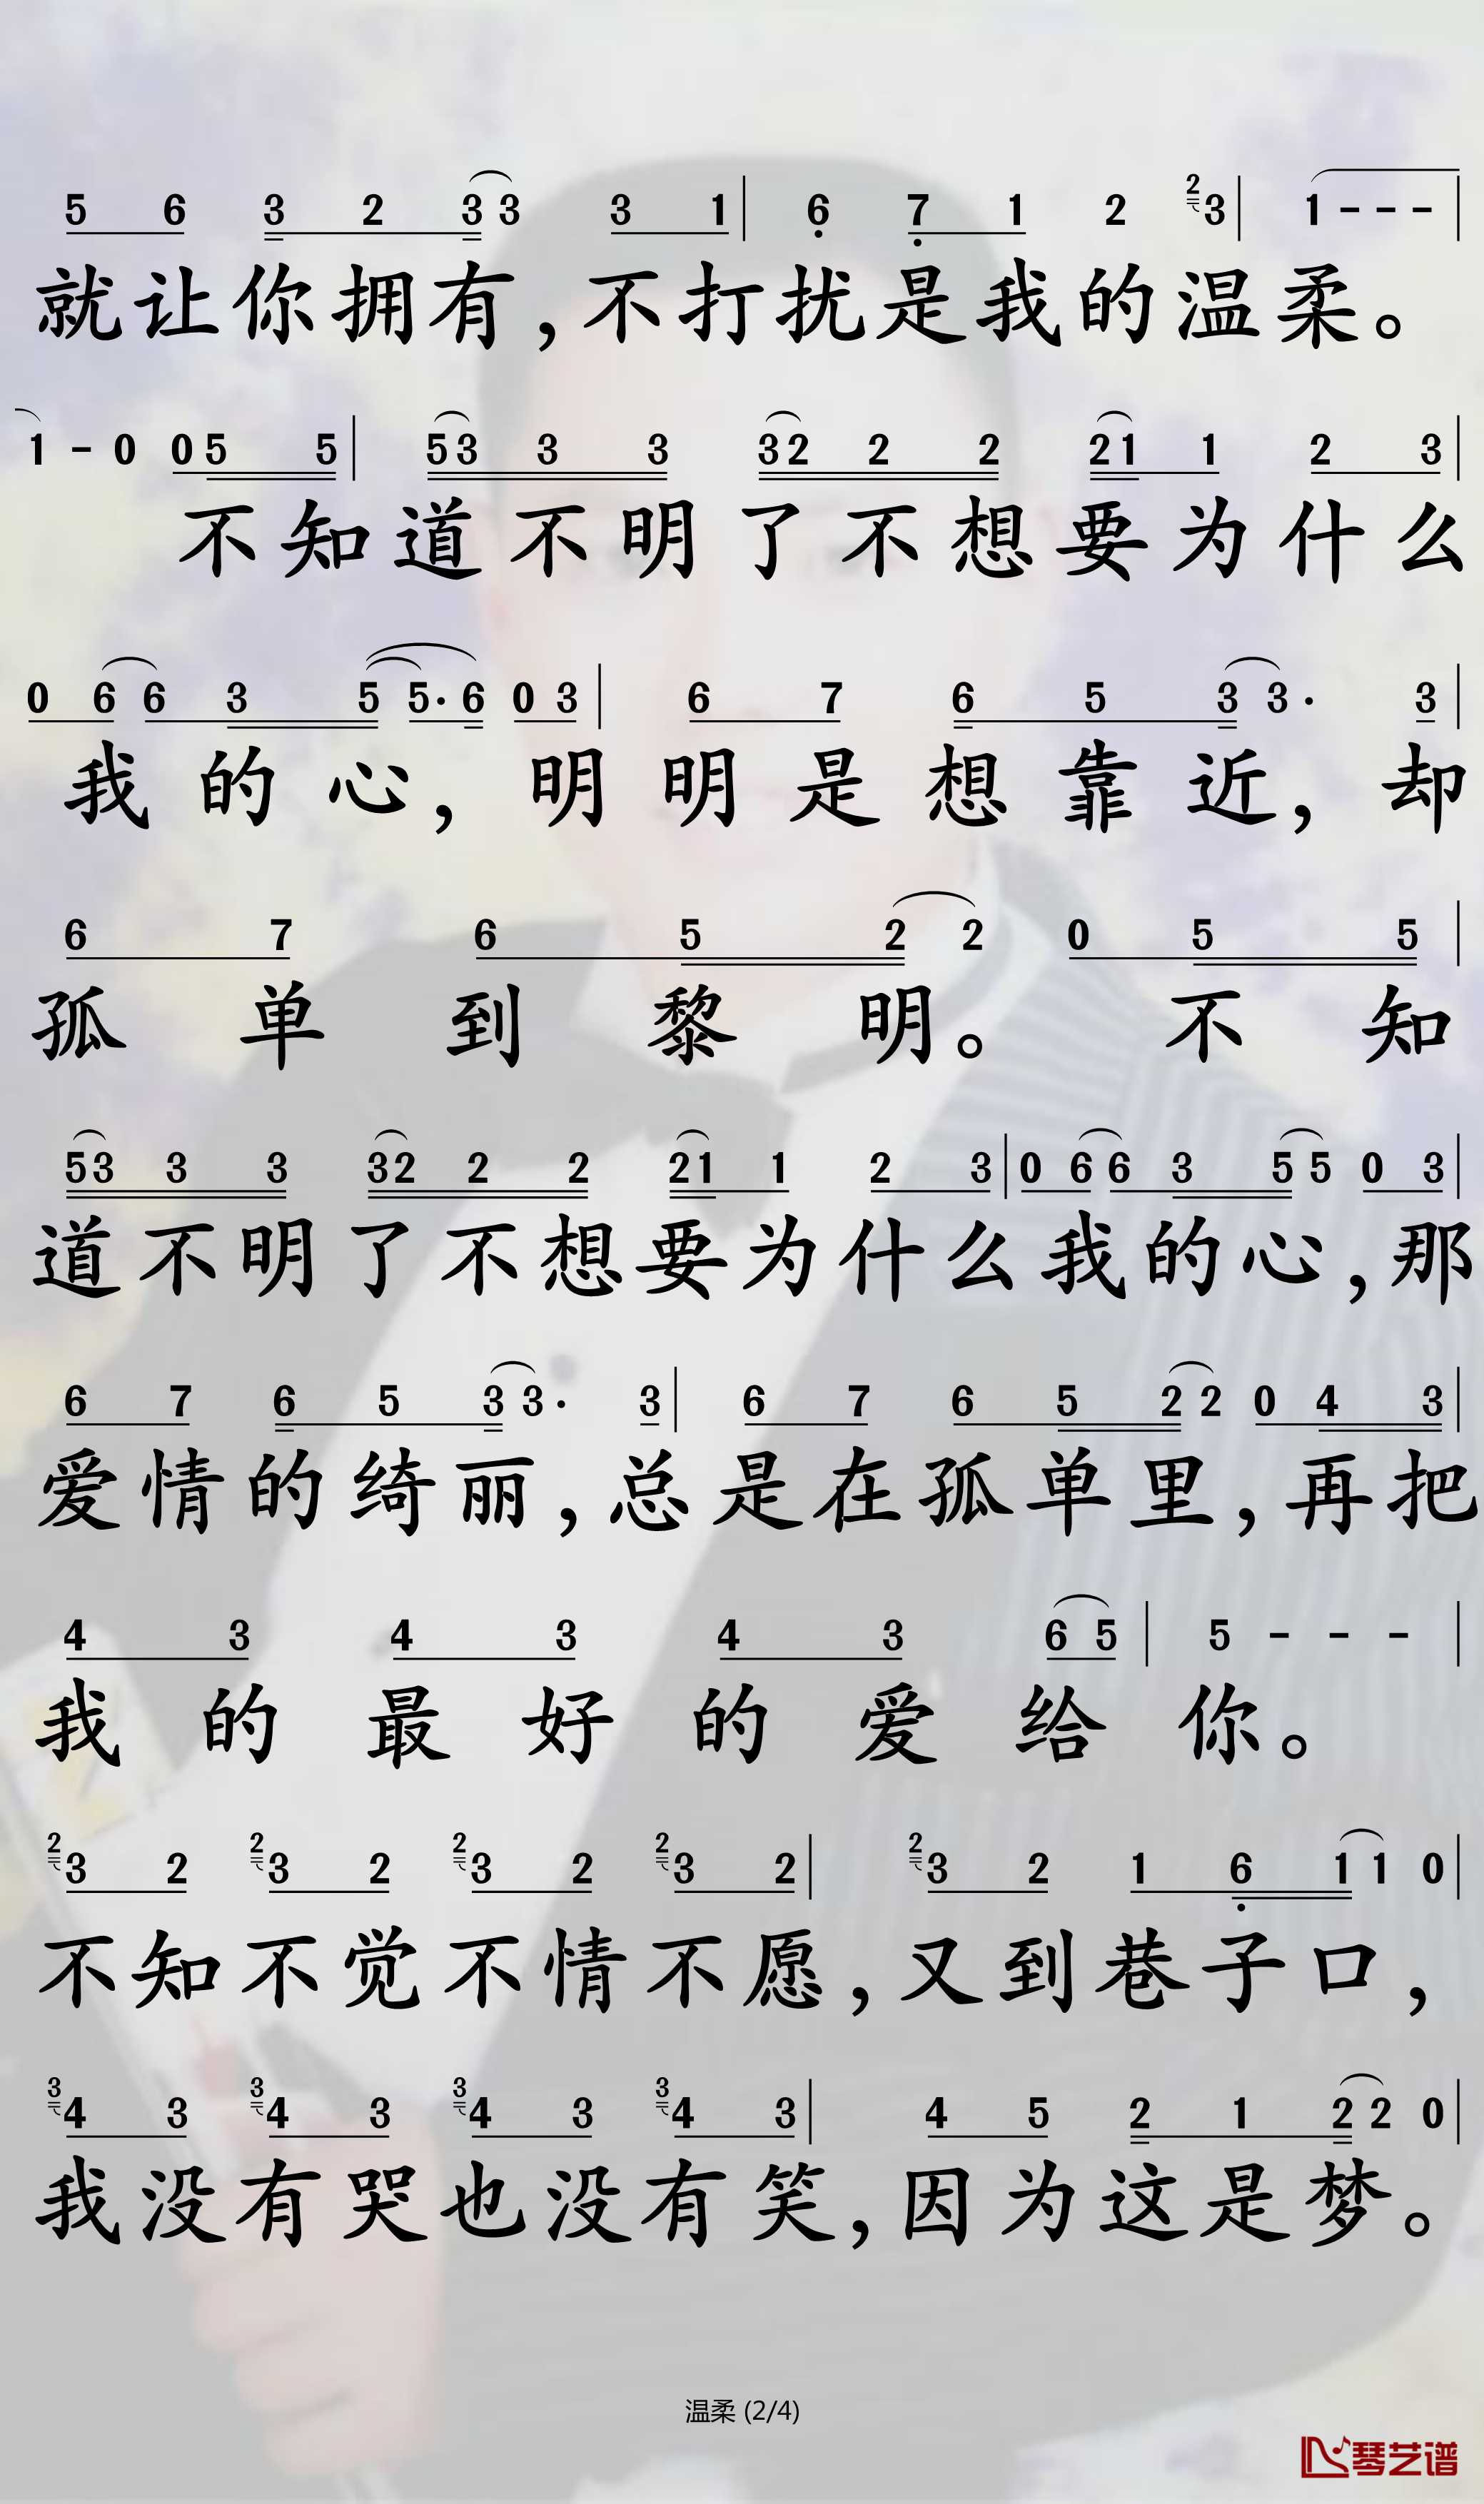 5 6 3 2 3 3 3 1 | 6 7 1 2 2 3 | 1 - - - |
就让你拥有,不打扰是我的温柔。
1 - 0 0 5 5 | 5 3 3 3 3 2 2 2 2 1 1 2 3 |
不知道不明了不想要为什么
0 6 6 3 5 5· 6 0 3 | 6 7 6 5 3 3· 3 |
我的心,明明是想靠近,却
6 7 6 5 2 2 0 5 5 |
孤单到黎明。不知
5 3 3 3 3 2 2 2 2 1 1 2 3 | 0 6 6 3 5 5 0 3 |
道不明了不想要为什么我的心,那
6 7 6 5 3 3· 3 | 6 7 6 5 2 2 0 4 3 |
爱情的绮丽,总是在孤单里,再把
4 3 4 3 4 3 6 5 | 5 - - - |
我的最好的爱给你。
2 3 2 2 3 2 2 3 2 2 3 2 | 2 3 2 1 6 1 1 0 |
不知不觉不情不愿,又到巷子口,
3 4 3 3 4 3 3 4 3 3 4 3 | 4 5 2 1 2 2 0 |
我没有哭也没有笑,因为这是梦。
温柔 (2/4)
琴艺谱